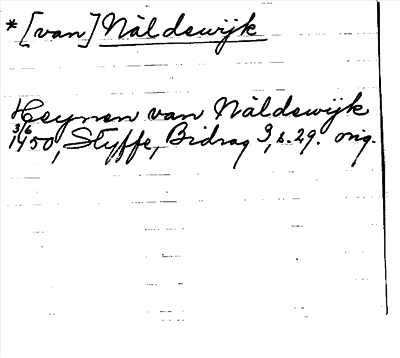 * [van] Nåldswijk
Heynen van Nåldswijk
3/6
1450, Styffe, Bidrag 3, s. 29. orig.